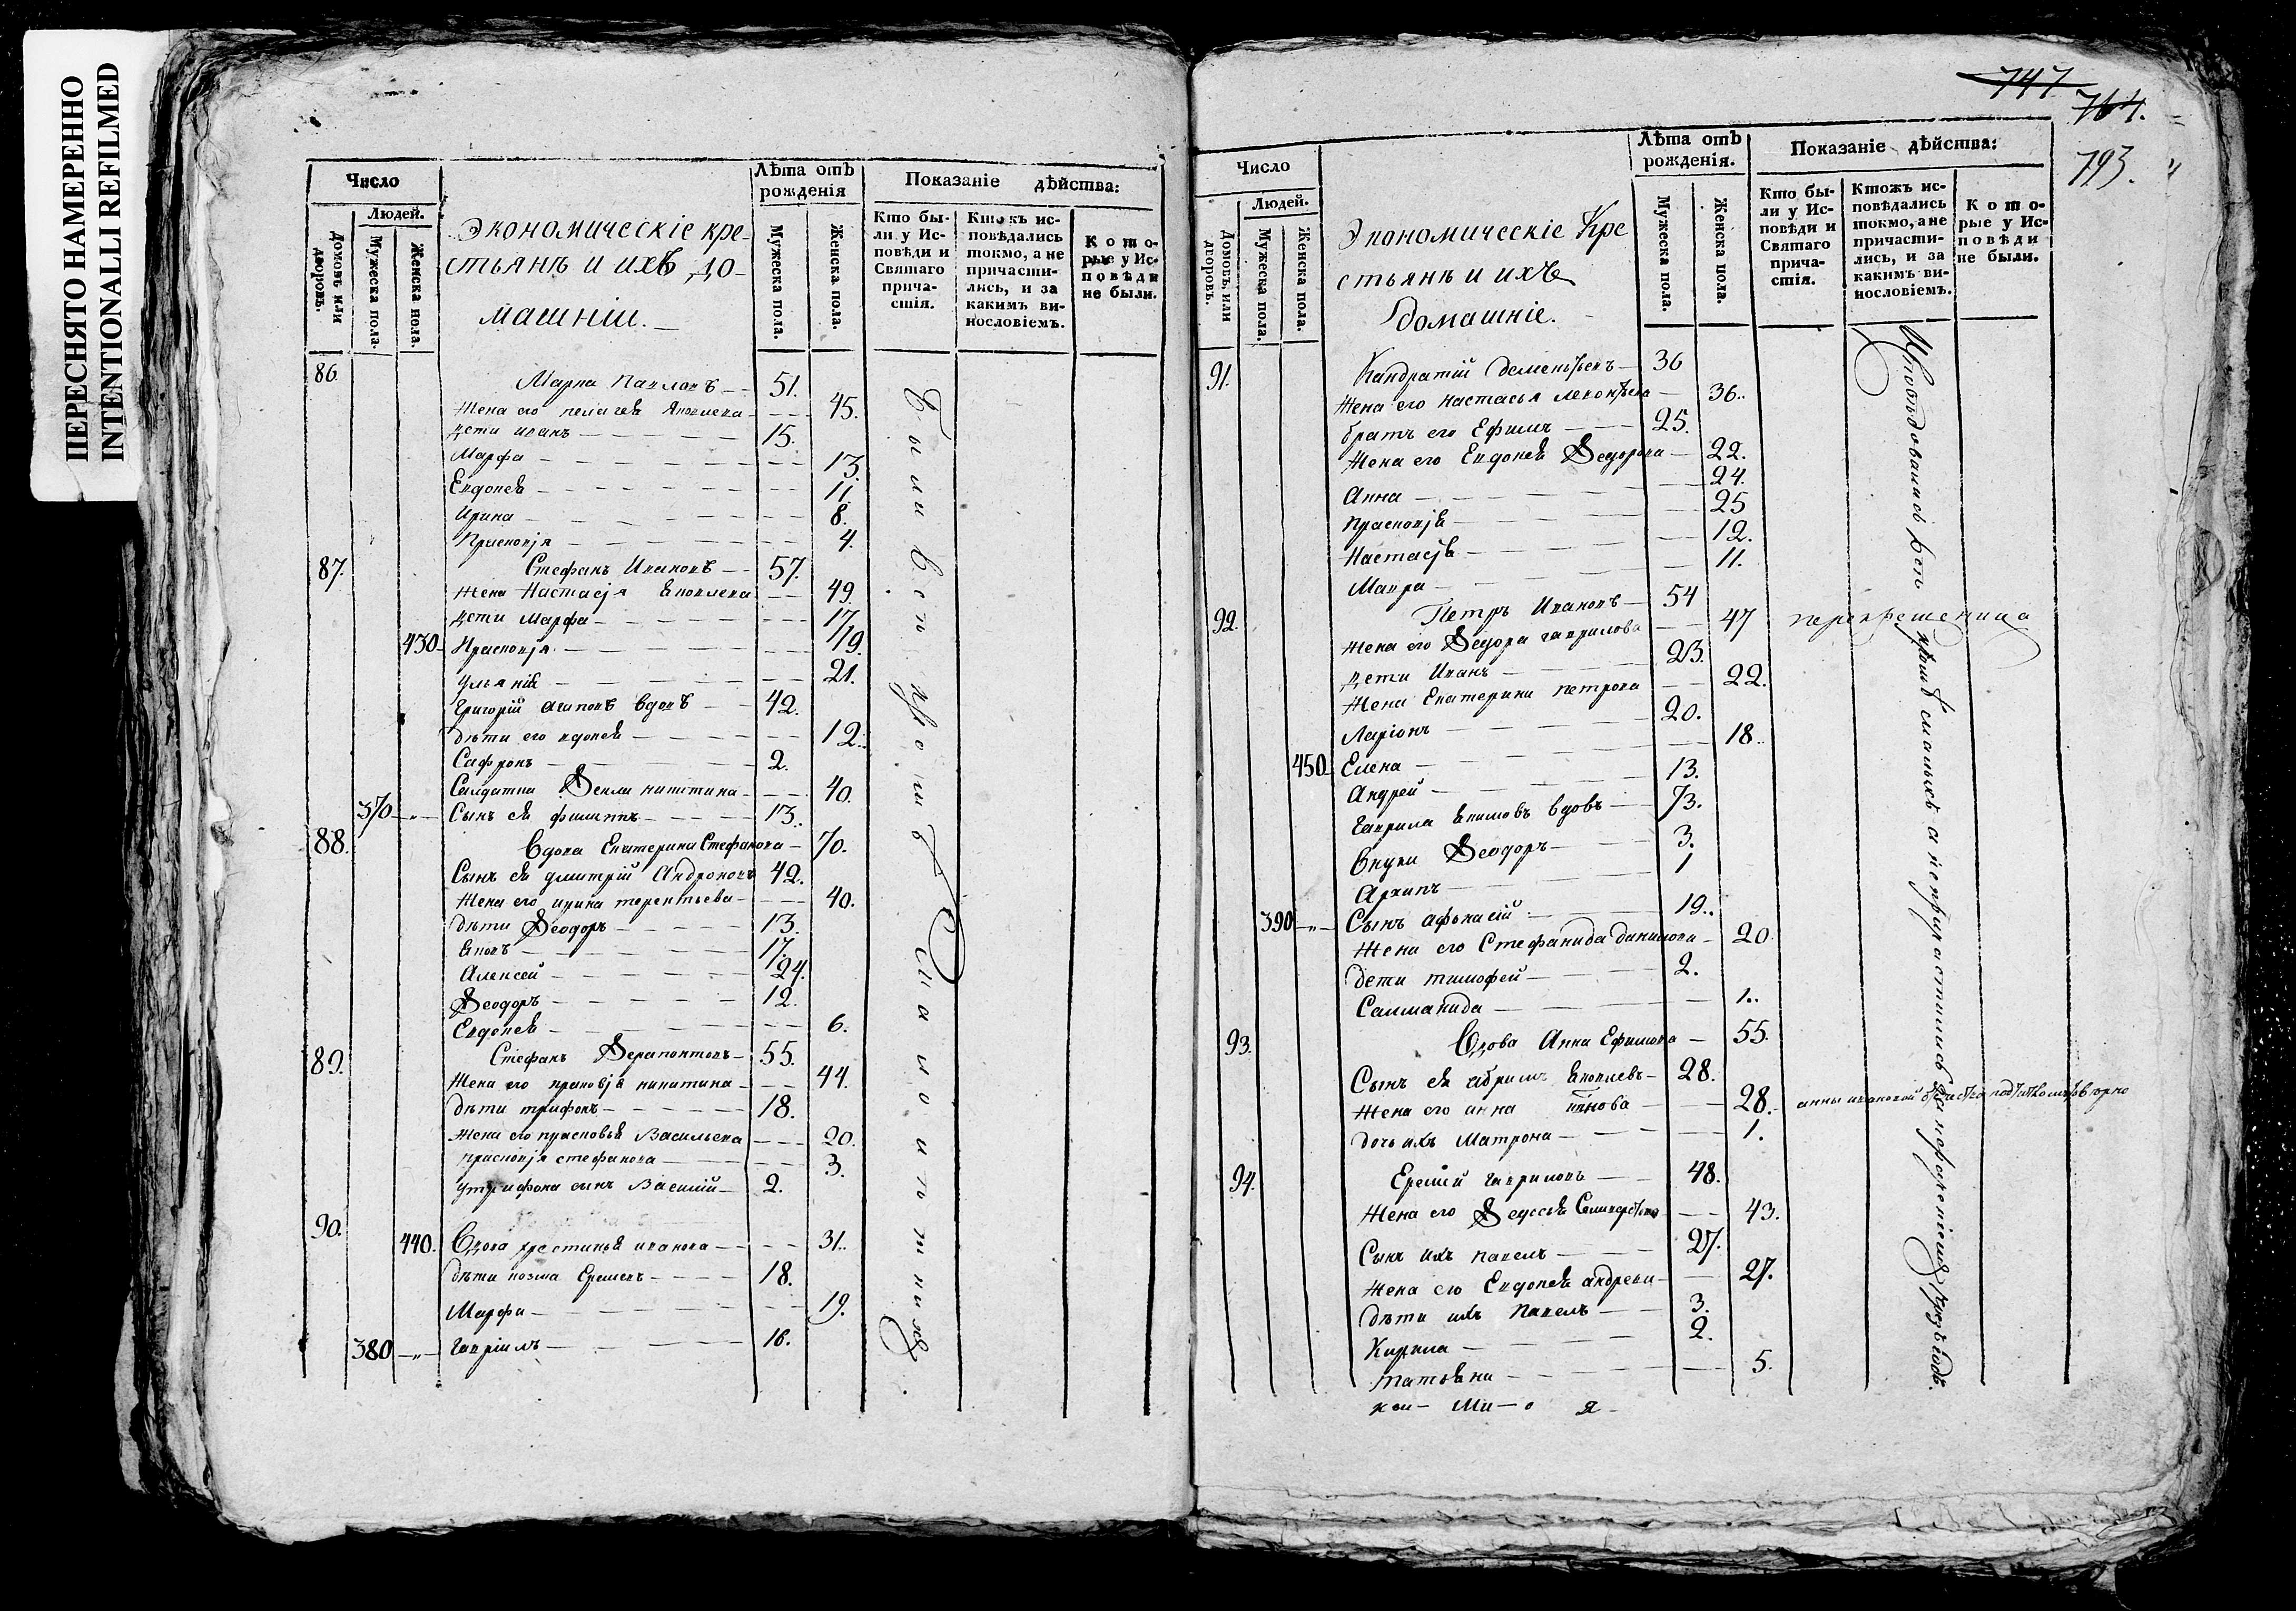 ПЕРЕСНЯТО НАМЕРЕННО
INTENTIONALLI REFILMED
Число
Людей.
Домовъ или дворовъ.
Мужеска пола.
Женска пола.
Экономическіе кре-
стьянѣ и ихъ до-
машніи.
Лѣта отъ рожденія
Мужеска пола.
Женска пола.
Показаніе дѣйства:
Кто бы-
ли у Ис-
повѣди и
Святаго
прича-
стія.
Ктожъ ис-
повѣдались
токмо, а не
причасти-
лись, и за
какимъ ви-
нословіемъ.
Кото-
рые у Ис-
повѣди
не были.
86. Марка Павловъ 51.
Жена его пелагея Яковлева 45.
дети иванъ 15.
Марфа 13.
Евдокея 11.
Ирина 8.
Прасковjя 4.
87. Стефанъ Ивановъ 57.
Жена Настасjя Яковлева 49.
дети Марфа 17.
430 Прасковjя 19.
Ульянія 21.
Григорій Агаповъ вдовъ 42.
дѣти его евдокея 12.
Сафронъ 2.
Салдатка Ѳекла никитина 40.
370 Сынъ ея филиппъ 13.
88. Вдова Екатерина Стефанова 70.
Сынъ ея дмитрій Андроновъ 42.
Жена его ирина терентьева 40.
дѣти Ѳеодоръ 13.
Яковъ 17.
Алексей 24.
Ѳеодоръ 12.
Евдокея 6.
89. Стефанъ Ѳерапонтовъ 55.
Жена его прасковjя никитина 44.
дѣти трифонъ 18.
Жена его прасковья Васильева 20.
прасковjя стефанова 3.
утрифона сынъ Василій 2.
90. 440. Вдова христинья иванова 31.
дѣти козма Еремеевъ 18.
Марфа 19.
380 гавріилъ 16.
747
764.
793.
Число
Людей.
Домовъ, или дворовъ.
Мужеска пола.
Женска пола.
Экономическіе Кре
стьянѣ и ихъ
домашніе.
Лѣта отъ рожденія.
Мужеска пола.
Женска пола.
Показаніе дѣйства:
Кто бы-
ли у Ис-
повѣди и
Святаго
прича-
стія.
Ктожъ ис-
повѣдались
токмо, а не
причасти-
лись, и за
какимъ ви-
нословіемъ.
Кото-
рые у Ис-
повѣди
не были.
91. Кандратій дементьевъ 36
Жена его настасья леконтьева 36.
братъ его Ефимъ 25.
Жена его Евдокея Ѳедорова 22.
Анна 24.
Прасковjя 25
Настасjя 12.
Мавра 11.
92. Петръ Ивановъ 54
Жена его Ѳедора гаврилова 47
дети Иванъ 23.
Жена Екатерина петрова 22.
Ларіонъ 20.
450 Елена 18.
Андрей 13.
гаврила Екимовъ вдовъ 73.
внуки Ѳеодоръ 3.
Архипъ 1
390 Сынъ афонасій 19.
Жена его Стефанида данилова 20.
дети тимофей 2.
Саламанида 1.
93. Вдова Анна Ефимова 55.
Сынъ ея абрамъ Яковлевъ 28.
Жена его анна 28.
дочь ихъ Матрона 1.
94. Еремій гавриловъ 48.
Жена его Ѳедосья Селиверстова 43.
Сынъ ихъ павелъ 27.
Жена его Евдокея андреева 27.
дѣти ихъ павелъ 3.
Кирила 2.
татьяна 5.